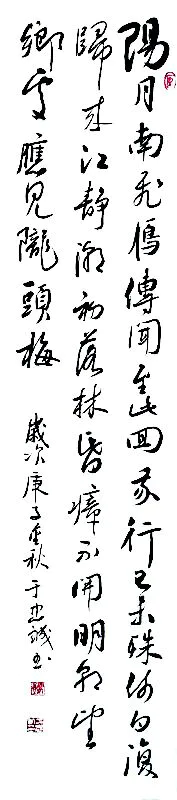 陽月南飛鴈傳聞至此回我行已未殊何日復
歸來江靜潮初落林昏瘴不開明朝望
鄉處應見隴頭梅
歲次庚子秋于忠誠書